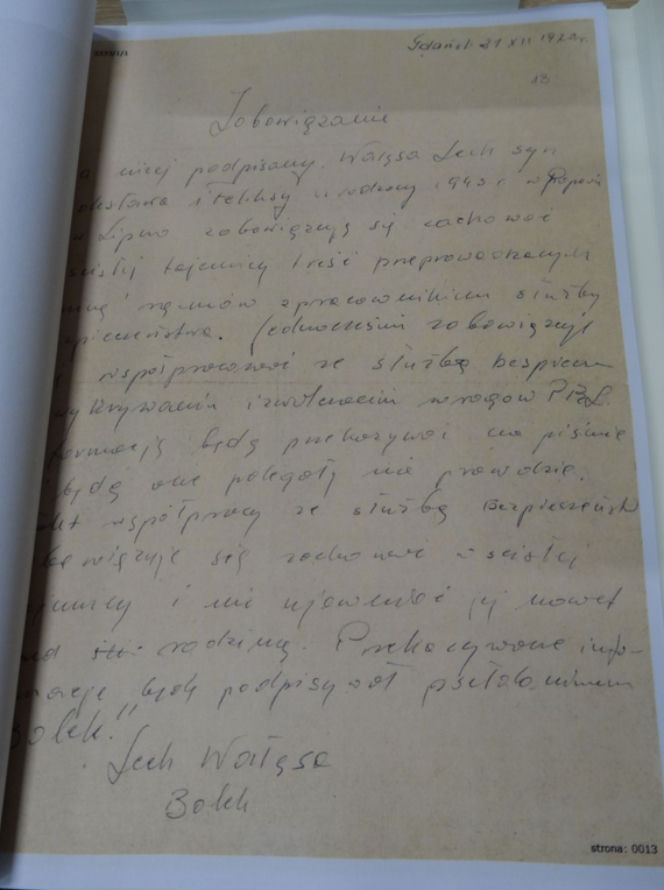 Gdańsk 21 XII 1970r.
13
Zobowiązanie
a niżej podpisany. Wałęsa Lech syn
olesława i Feliksy urodzony 1943 r w Popowie
Lipno zobowiązuję się zachować
ścisłej tajemnicy treść przeprowadzonych
mną rozmów z pracownikiem służby
zpieczeństwa. Jednocześnie zobowiązuję
współpracować ze służbą bezpiecze
wykrywaniu i zwalczaniu wrogów PRL.
formację będę przekazywać na piśmie
będą one polegały na prawdzie.
kt współpracy ze służbą Bezpieczeństw
bowiązuję się zachować w ścisłej
ajemnicy i nie ujawniać jej nawet
ed rodziną. Przekazywane info-
macje będę podpisywał pseudonimem
Bolek."
Lech Wałęsa
Bolek
strona: 0013